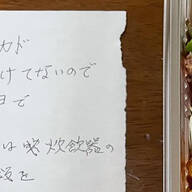 カド
けてないので
日で
は 炊飲器の
飯を